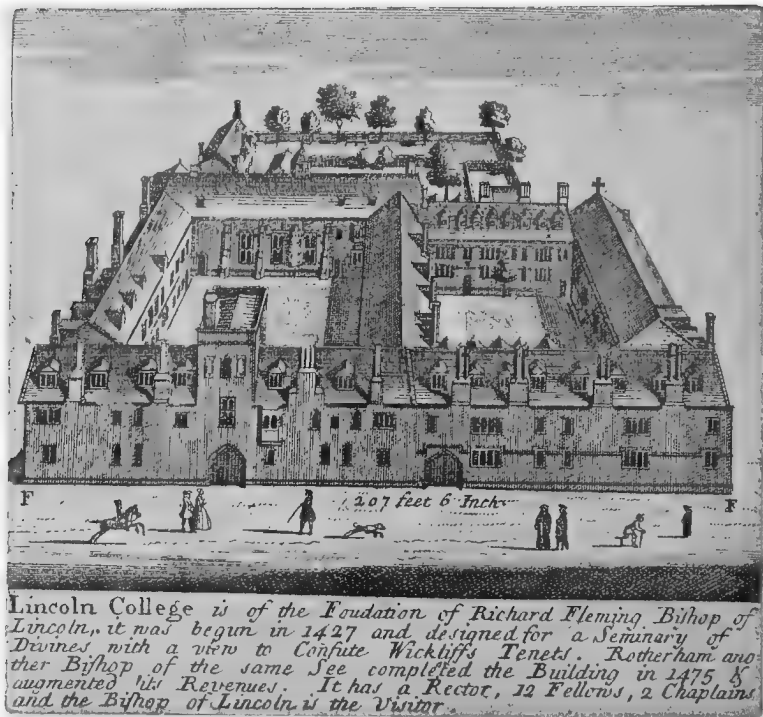 F 207 feet 6 Inch F
Lincoln College is of the Foudation of Richard Fleming Bishop of
Lincoln, it was begun in 1427 and designed for a Seminary of
Divines with a view to Confute Wickliffs Tenets. Rotherham ano
ther Bishop of the same See completed the Building in 1475 &
augmented its Revenues. It has a Rector, 12 Fellows, 2 Chaplains
and the Bishop of Lincoln is the Visitor.